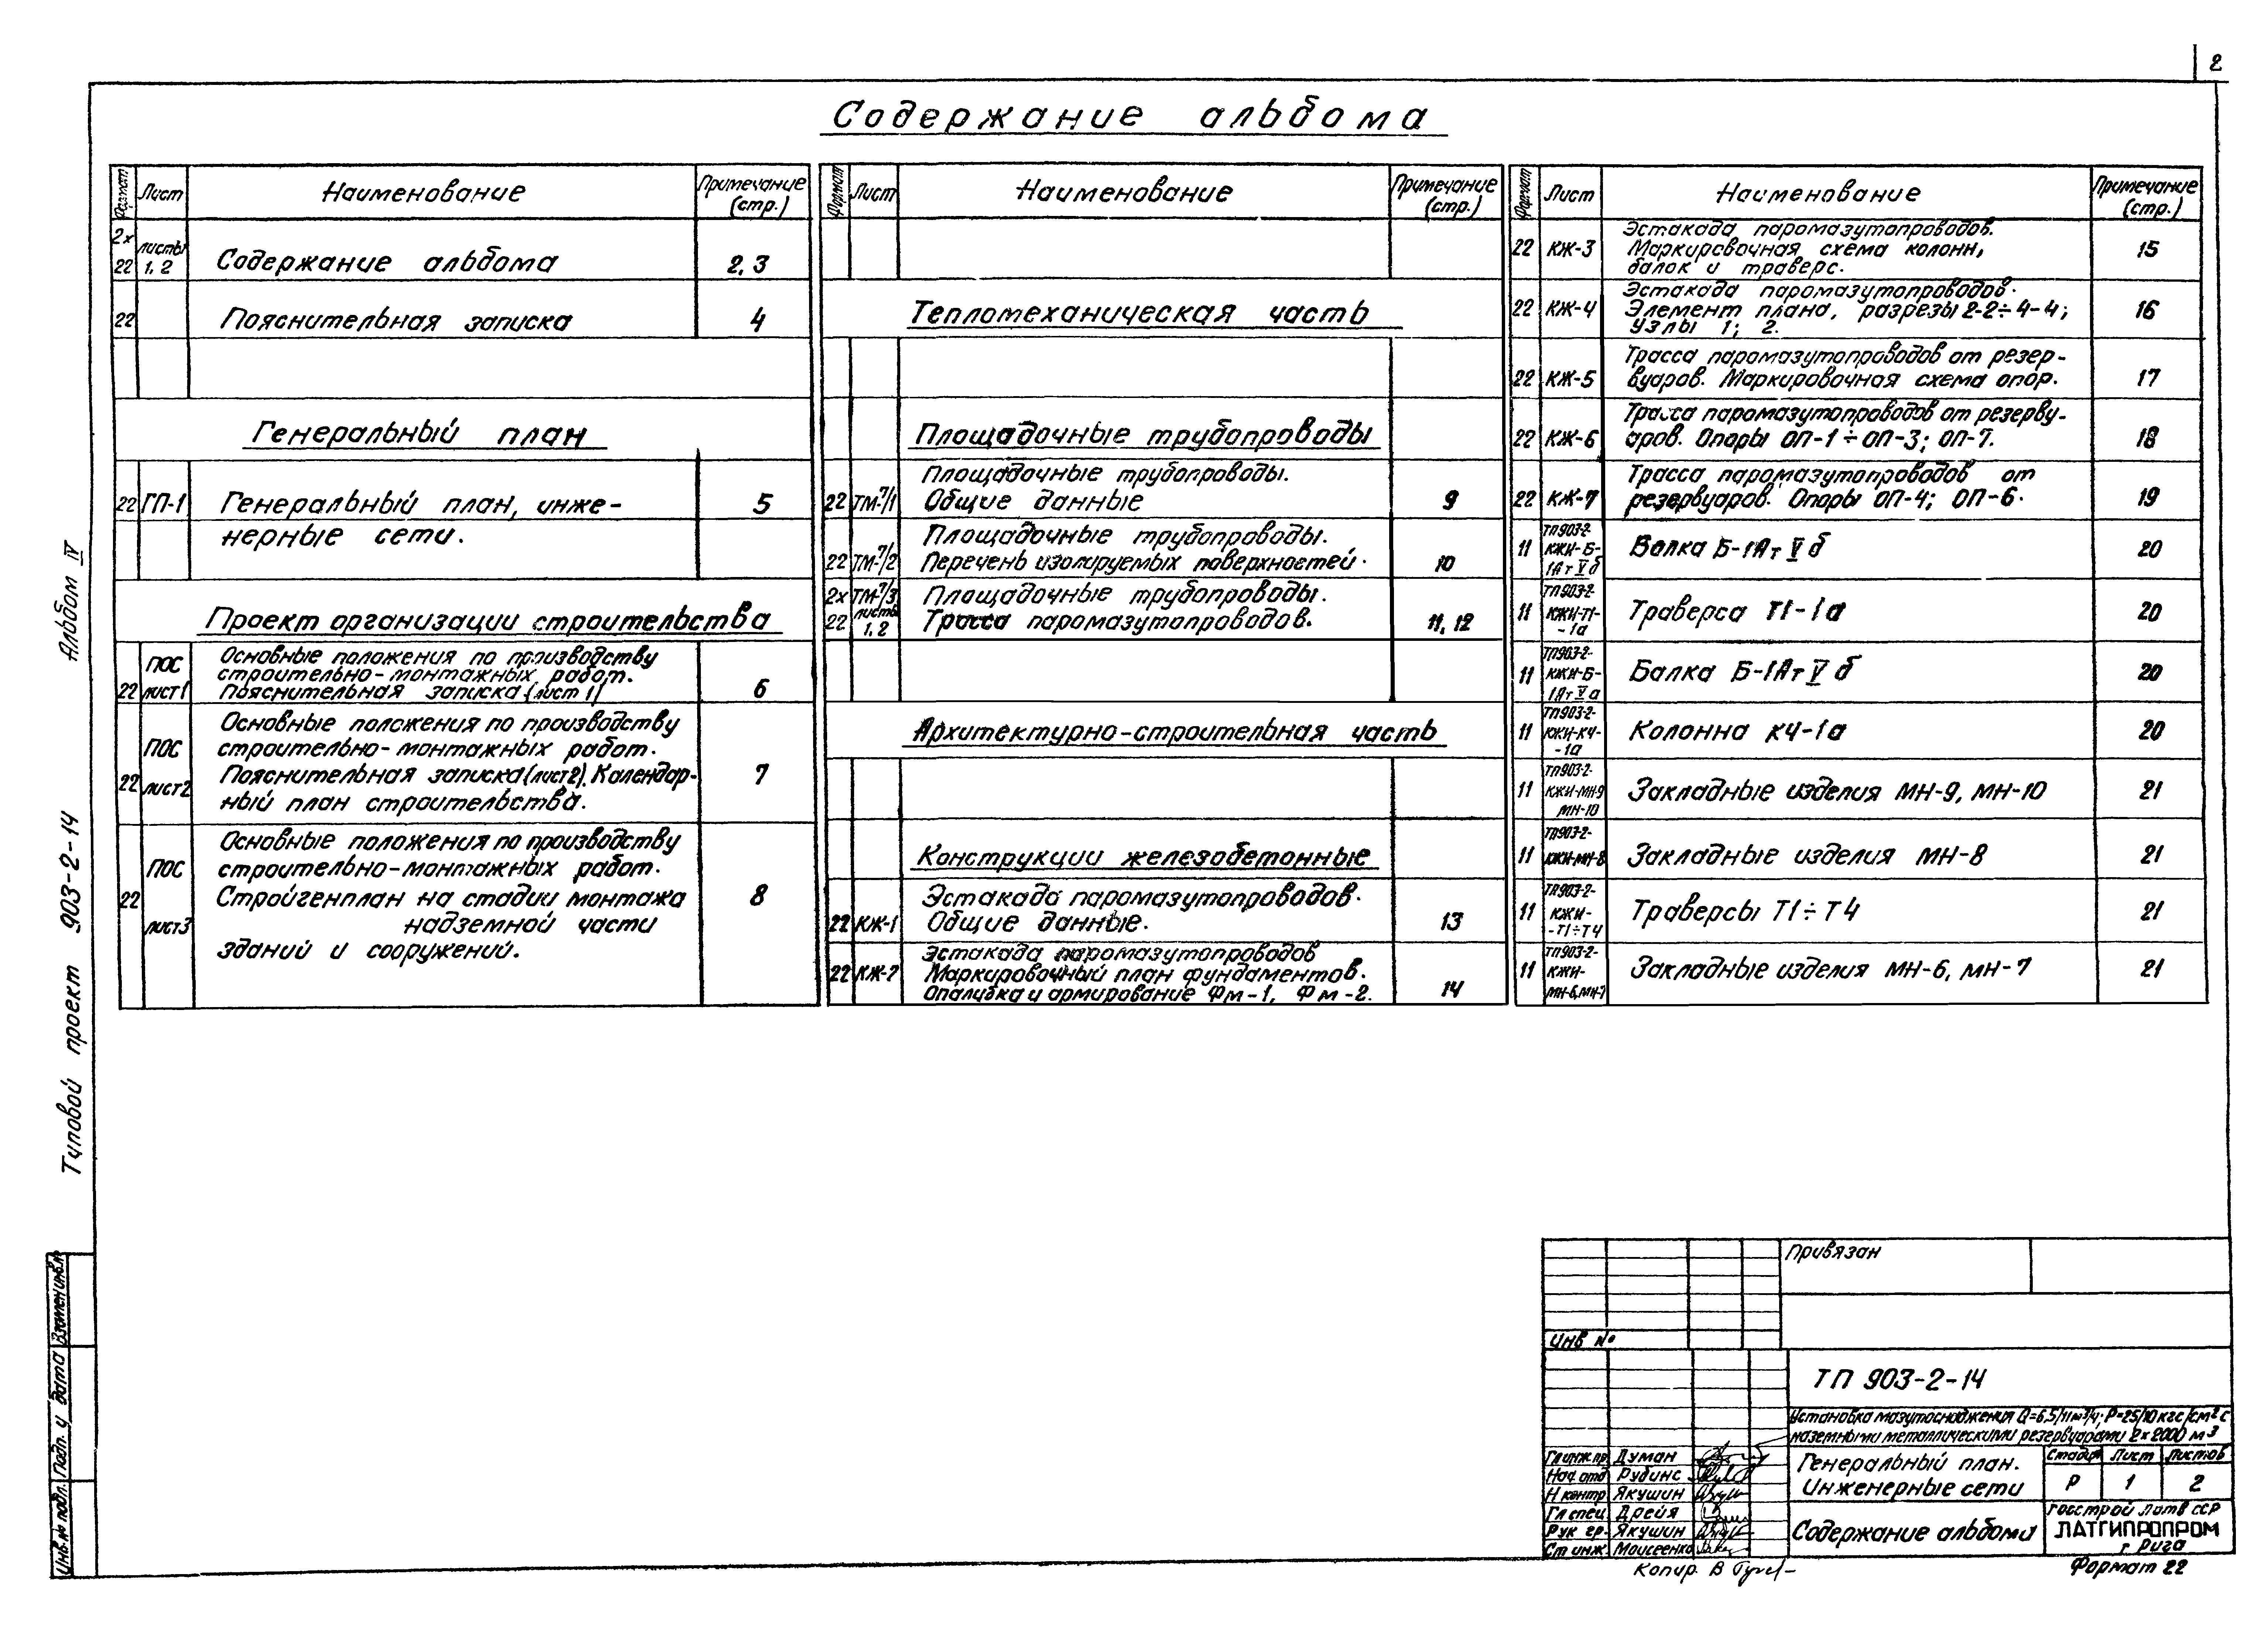 2
Содержание альбома
Формат Лист Наименование Примечание (стр.)
2х 22 листы 1, 2 Содержание альбома 2, 3
22 Пояснительная записка 4
Генеральный план
22 ГП-1 Генеральный план, инже-
нерные сети. 5
Проект организации строительства
22 ПОС лист 1 Основные положения по производству
строительно-монтажных работ.
Пояснительная записка (лист 1) 6
22 ПОС лист 2 Основные положения по производству
строительно-монтажных работ.
Пояснительная записка (лист 2). Календар-
ный план строительства. 7
22 ПОС лист 3 Основные положения по производству
строительно-монтажных работ.
Стройгенплан на стадии монтажа
надземной части
зданий и сооружений. 8
Формат Лист Наименование Примечание (стр.)
Тепломеханическая часть
Площадочные трубопроводы
22 ТМ-7/1 Площадочные трубопроводы.
Общие данные 9
22 ТМ-7/2 Площадочные трубопроводы.
Перечень изолируемых поверхностей. 10
2х 22 ТМ-7/3 листы 1, 2 Площадочные трубопроводы.
Трасса паромазутопроводов. 11, 12
Архитектурно-строительная часть
Конструкции железобетонные
22 КЖ-1 Эстакада паромазутопроводов.
Общие данные. 13
22 КЖ-2 Эстакада паромазутопроводов
Маркировочный план фундаментов.
Опалубка и армирование Фм-1, Фм-2. 14
Формат Лист Наименование Примечание (стр.)
22 КЖ-3 Эстакада паромазутопроводов.
Маркировочная схема колонн,
балок и траверс. 15
22 КЖ-4 Эстакада паромазутопроводов.
Элемент плана, разрезы 2-2÷4-4;
узлы 1; 2. 16
22 КЖ-5 Трасса паромазутопроводов от резер-
вуаров. Маркировочная схема опор. 17
22 КЖ-6 Трасса паромазутопроводов от резерву-
аров. Опоры ОП-1÷ОП-3; ОП-7. 18
22 КЖ-7 Трасса паромазутопроводов от
резервуаров. Опоры ОП-4; ОП-6. 19
11 ТП903-2-КЖИ-Б-1Ат V б Балка Б-1Ат V б 20
11 ТП903-2-КЖИ-Т1-1а Траверса Т1-1а 20
11 ТП903-2-КЖИ-Б-1Ат V а Балка Б-1Ат V б 20
11 ТП903-2-КЖИ-К4-1а Колонна К4-1а 20
11 ТП903-2-КЖИ-МН-9 МН-10 Закладные изделия МН-9, МН-10 21
11 ТП903-2-КЖИ-МН-8 Закладные изделия МН-8 21
11 ТП903-2-КЖИ-Т1÷Т4 Траверсы Т1÷Т4 21
11 ТП903-2-КЖИ-МН-6,МН-7 Закладные изделия МН-6, МН-7 21
Типовой проект 903-2-14 Альбом IV
Инв.№ подл. Подп. и дата Взамен инв.№
Привязан
Инв №
ТП 903-2-14
Установка мазутоснабжения Q=6,5/11м³/ч; Р=25/10 кгс/см² с
наземными металлическими резервуарами 2×2000 м³
Гл инж.пр. Думан
Нач. отд Рубинс
Н контр Якушин
Гл спец. Дрейя
Рук гр. Якушин
Ст инж. Моисеенко
Генеральный план.
Инженерные сети
Стадия Лист Листов
Р 1 2
Содержание альбома
Госстрой Латв ССР
ЛАТГИПРОПРОМ
г. Рига
Копир. В
Формат 22